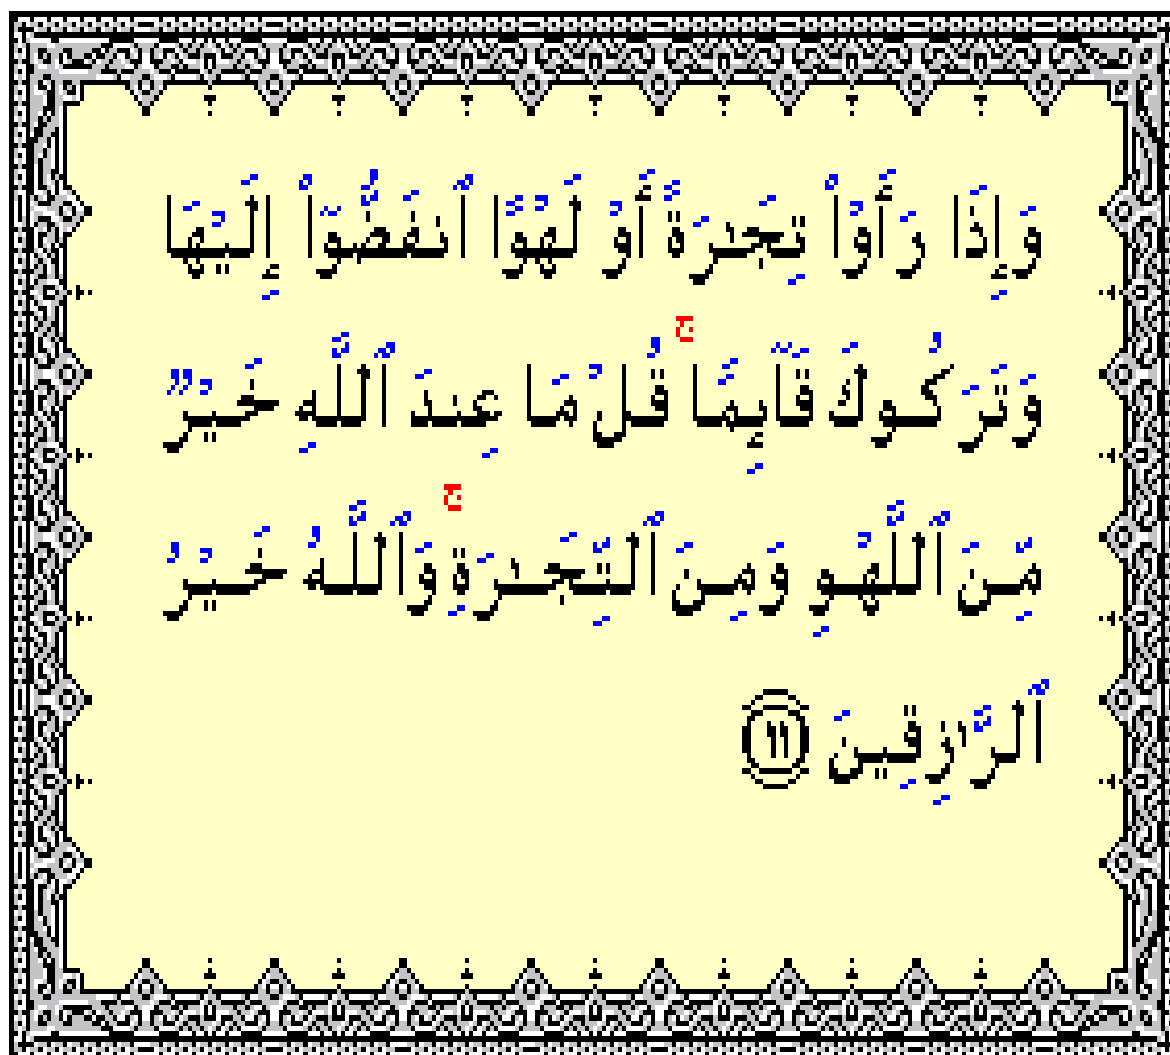 وَإِذَا رَأَوْا۟ تِجَـٰرَةً أَوْ لَهْوًا ٱنفَضُّوٓا۟ إِلَيْهَا
وَتَرَكُوكَ قَآئِمًا ۚ قُلْ مَا عِندَ ٱللَّهِ خَيْرٌ
مِّنَ ٱللَّهْوِ وَمِنَ ٱلتِّجَـٰرَةِ ۚ وَٱللَّهُ خَيْرُ
ٱلرَّٰزِقِينَ ١١